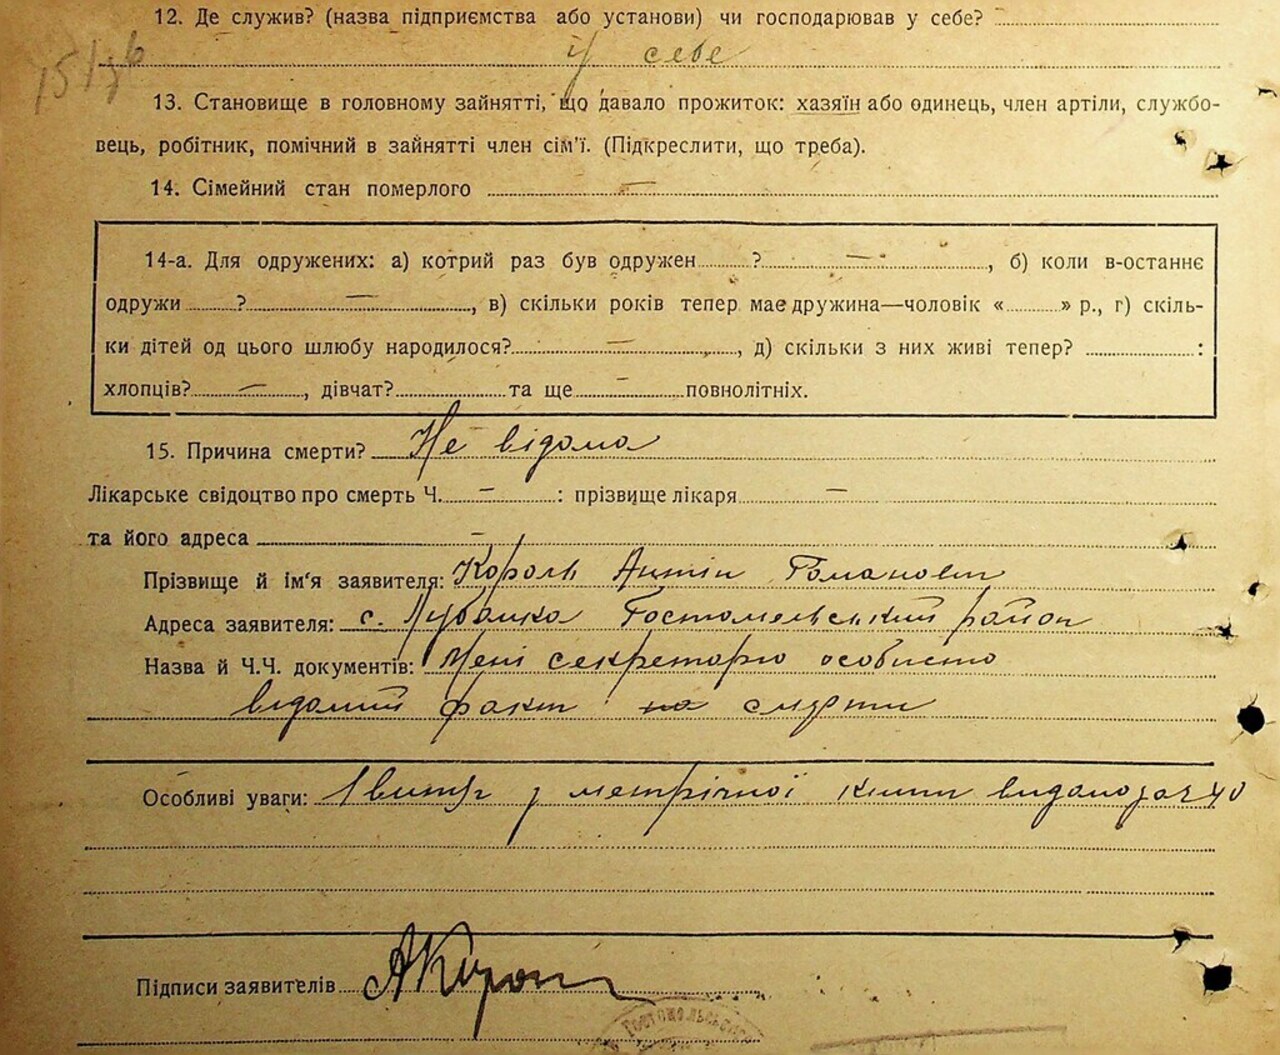 12. Де служив? (назва підприємства або установи) чи господарював у себе?
у себе
13. Становище в головному зайнятті, що давало прожиток: хазяїн або одинець, член артіли, службо-
вець, робітник, помічний в зайнятті член сім'ї. (Підкреслити, що треба).
14. Сімейний стан померлого —
14-а. Для одружених: а) котрий раз був одружен ? —, б) коли в-останнє
одружи ? —, в) скільки років тепер має дружина—чоловік « » р., г) скіль-
ки дітей од цього шлюбу народилося? —, д) скільки з них живі тепер? :
хлопців? —, дівчат? та ще — повнолітніх.
15. Причина смерти? Не відома
Лікарське свідоцтво про смерть Ч. — : прізвище лікаря —
та його адреса —
Прізвище й ім'я заявителя: Король Антін Романович
Адреса заявителя: с. Лубянка Гостомельський район
Назва й Ч.Ч. документів: Мені секретарю особисто
відомий факт на смерти
Особливі уваги: з метрічної книги видано за № 40
Підписи заявителів АКороль